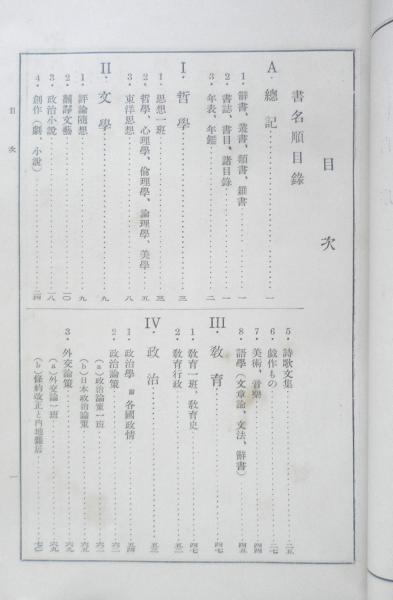 目次
書名順目錄
A. 總記……一
1 辭書、叢書、類書、雜書……一
2 書誌、書目、諸目錄……一
3 年表、年鑑……二
I. 哲學……三
1 思想一班……三
2 哲學、心理學、倫理學、論理學、美學……五
3 東洋思想……八
II. 文學……九
1 評論隨想……九
2 飜譯文藝……一〇
3 政治小說……一八
4 創作（劇、小說）……二四
5 詩歌文集……二五
6 戲作もの……二七
7 美術、音樂……四四
8 語學（文章論、文法、辭書）……四五
III. 教育……四七
1 教育一班、教育史……四七
2 教育行政……五一
IV. 政治……五三
1 政治學 附 各國政情……五四
2 政治論策……六二
(a) 政治論策一班……六二
(b) 日本政治論策……六五
3 外交論策……六九
(a) 外交論一班……六九
(b) 條約改正と內地雜居……七〇
目次
一